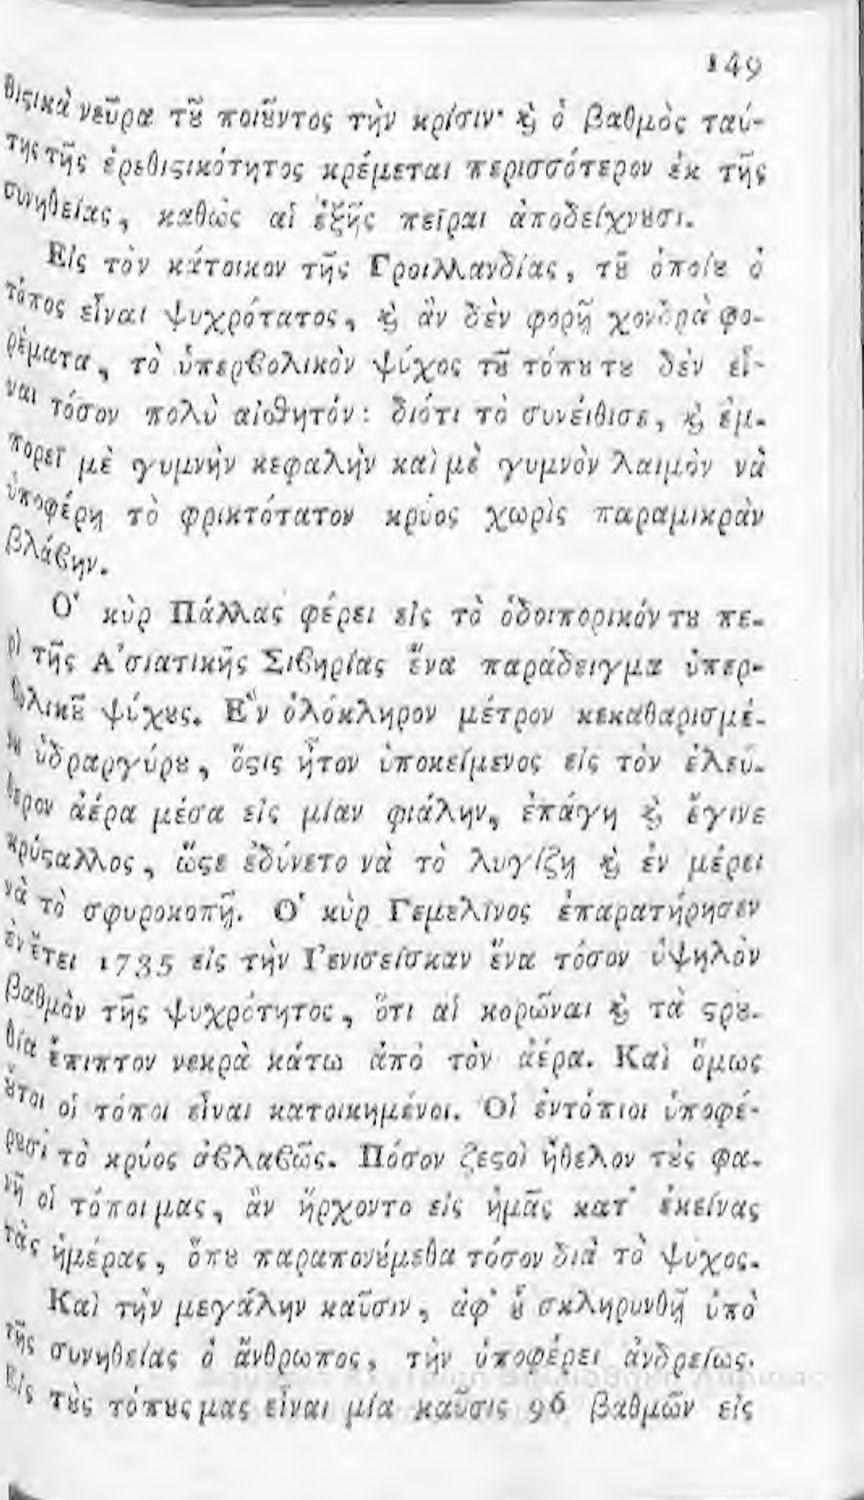 149
θιϛικὰ νεῦρα τȣ͂ ποιȣ͂ντος τὴν κρίσιν· ϗ ὁ βαθμὸς ταύ-
της τῆς ἐρεθιϛικότητος κρέμεται περισσότερον ἐκ τῆς
συνηθείας, καθὼς αἱ ἑξῆς πεῖραι ἀποδείχνȣσι.
Εἰς τὸν κάτοικον τῆς Γροιλλανδίας, τȣ͂ ὁποίȣ ὁ
τόπος εἶναι ψυχρότατος, ϗ ἂν δὲν φορῇ χονδρὰ φο-
ρέματα, τὸ ὑπερβολικὸν ψύχος τȣ͂ τόπȣ τȣ δὲν εἶ-
ναι τόσον πολὺ αἰσθητόν: διότι τὸ συνέιθισε, ϗ ἐμ-
πορεῖ μὲ γυμνὴν κεφαλὴν καὶ μὲ γυμνὸν λαιμὸν νὰ
ὑποφέρῃ τὸ φρικτότατον κρύος χωρὶς παραμικρὰν
βλάβην.
Ὁ κὺρ Πάλλας φέρει εἰς τὸ ὁδοιπορικόν τȣ πε-
ρὶ τῆς Ἀσιατικῆς Σιβηρίας ἕνα παράδειγμα ὑπερ-
βολικȣ͂ ψύχȣς. Ἓν ὁλόκληρον μέτρον κεκαθαρισμέ-
ν ὑδραργύρȣ, ὅϛις ἦτον ὑποκείμενος εἰς τὸν ἐλεύ-
θερον ἀέρα μέσα εἰς μίαν φιάλην, ἐπάγη ϗ ἔγινε
κρύϛαλλος, ὥϛε ἐδύνετο νὰ τὸ λυγίζῃ ϗ ἐν μέρει
νὰ τὸ σφυροκοπῇ. Ὁ κὺρ Γεμελῖνος ἐπαρατήρησεν
ἐν ἔτει 1735 εἰς τὴν Γενισείσκαν ἕνα τόσον ὑψηλὸν
βαθμὸν τῆς ψυχρότητος, ὅτι αἱ κορῶναι ϗ τὰ ϛρȣ-
θία ἔπιπτον νεκρὰ κάτω ἀπὸ τὸν ἀέρα. Καὶ ὅμως
ȣ͗͂τοι οἱ τόποι εἶναι κατοικημένοι. Οἱ ἐντόπιοι ὑποφέ-
ρȣσι τὸ κρύος ἀβλαβῶς. Πόσον ζεϛοὶ ἤθελον τȣ̀ς φα-
νῆ οἱ τόποι μας, ἂν ἤρχοντο εἰς ἡμᾶς κατ' ἐκείνας
τὰς ἡμέρας, ὅπȣ παραπονȣ́μεθα τόσον διὰ τὸ ψύχος.
Καὶ τὴν μεγάλην καῦσιν, ἀφ' ȣ͗͂ σκληρυνθῇ ὑπὸ
τῆς συνηθείας ὁ ἄνθρωπος, τὴν ὑποφέρει ἀνδρείως.
Εἰς τȣ̀ς τόπȣς μας εἶναι μία καῦσις 96 βαθμῶν εἰς